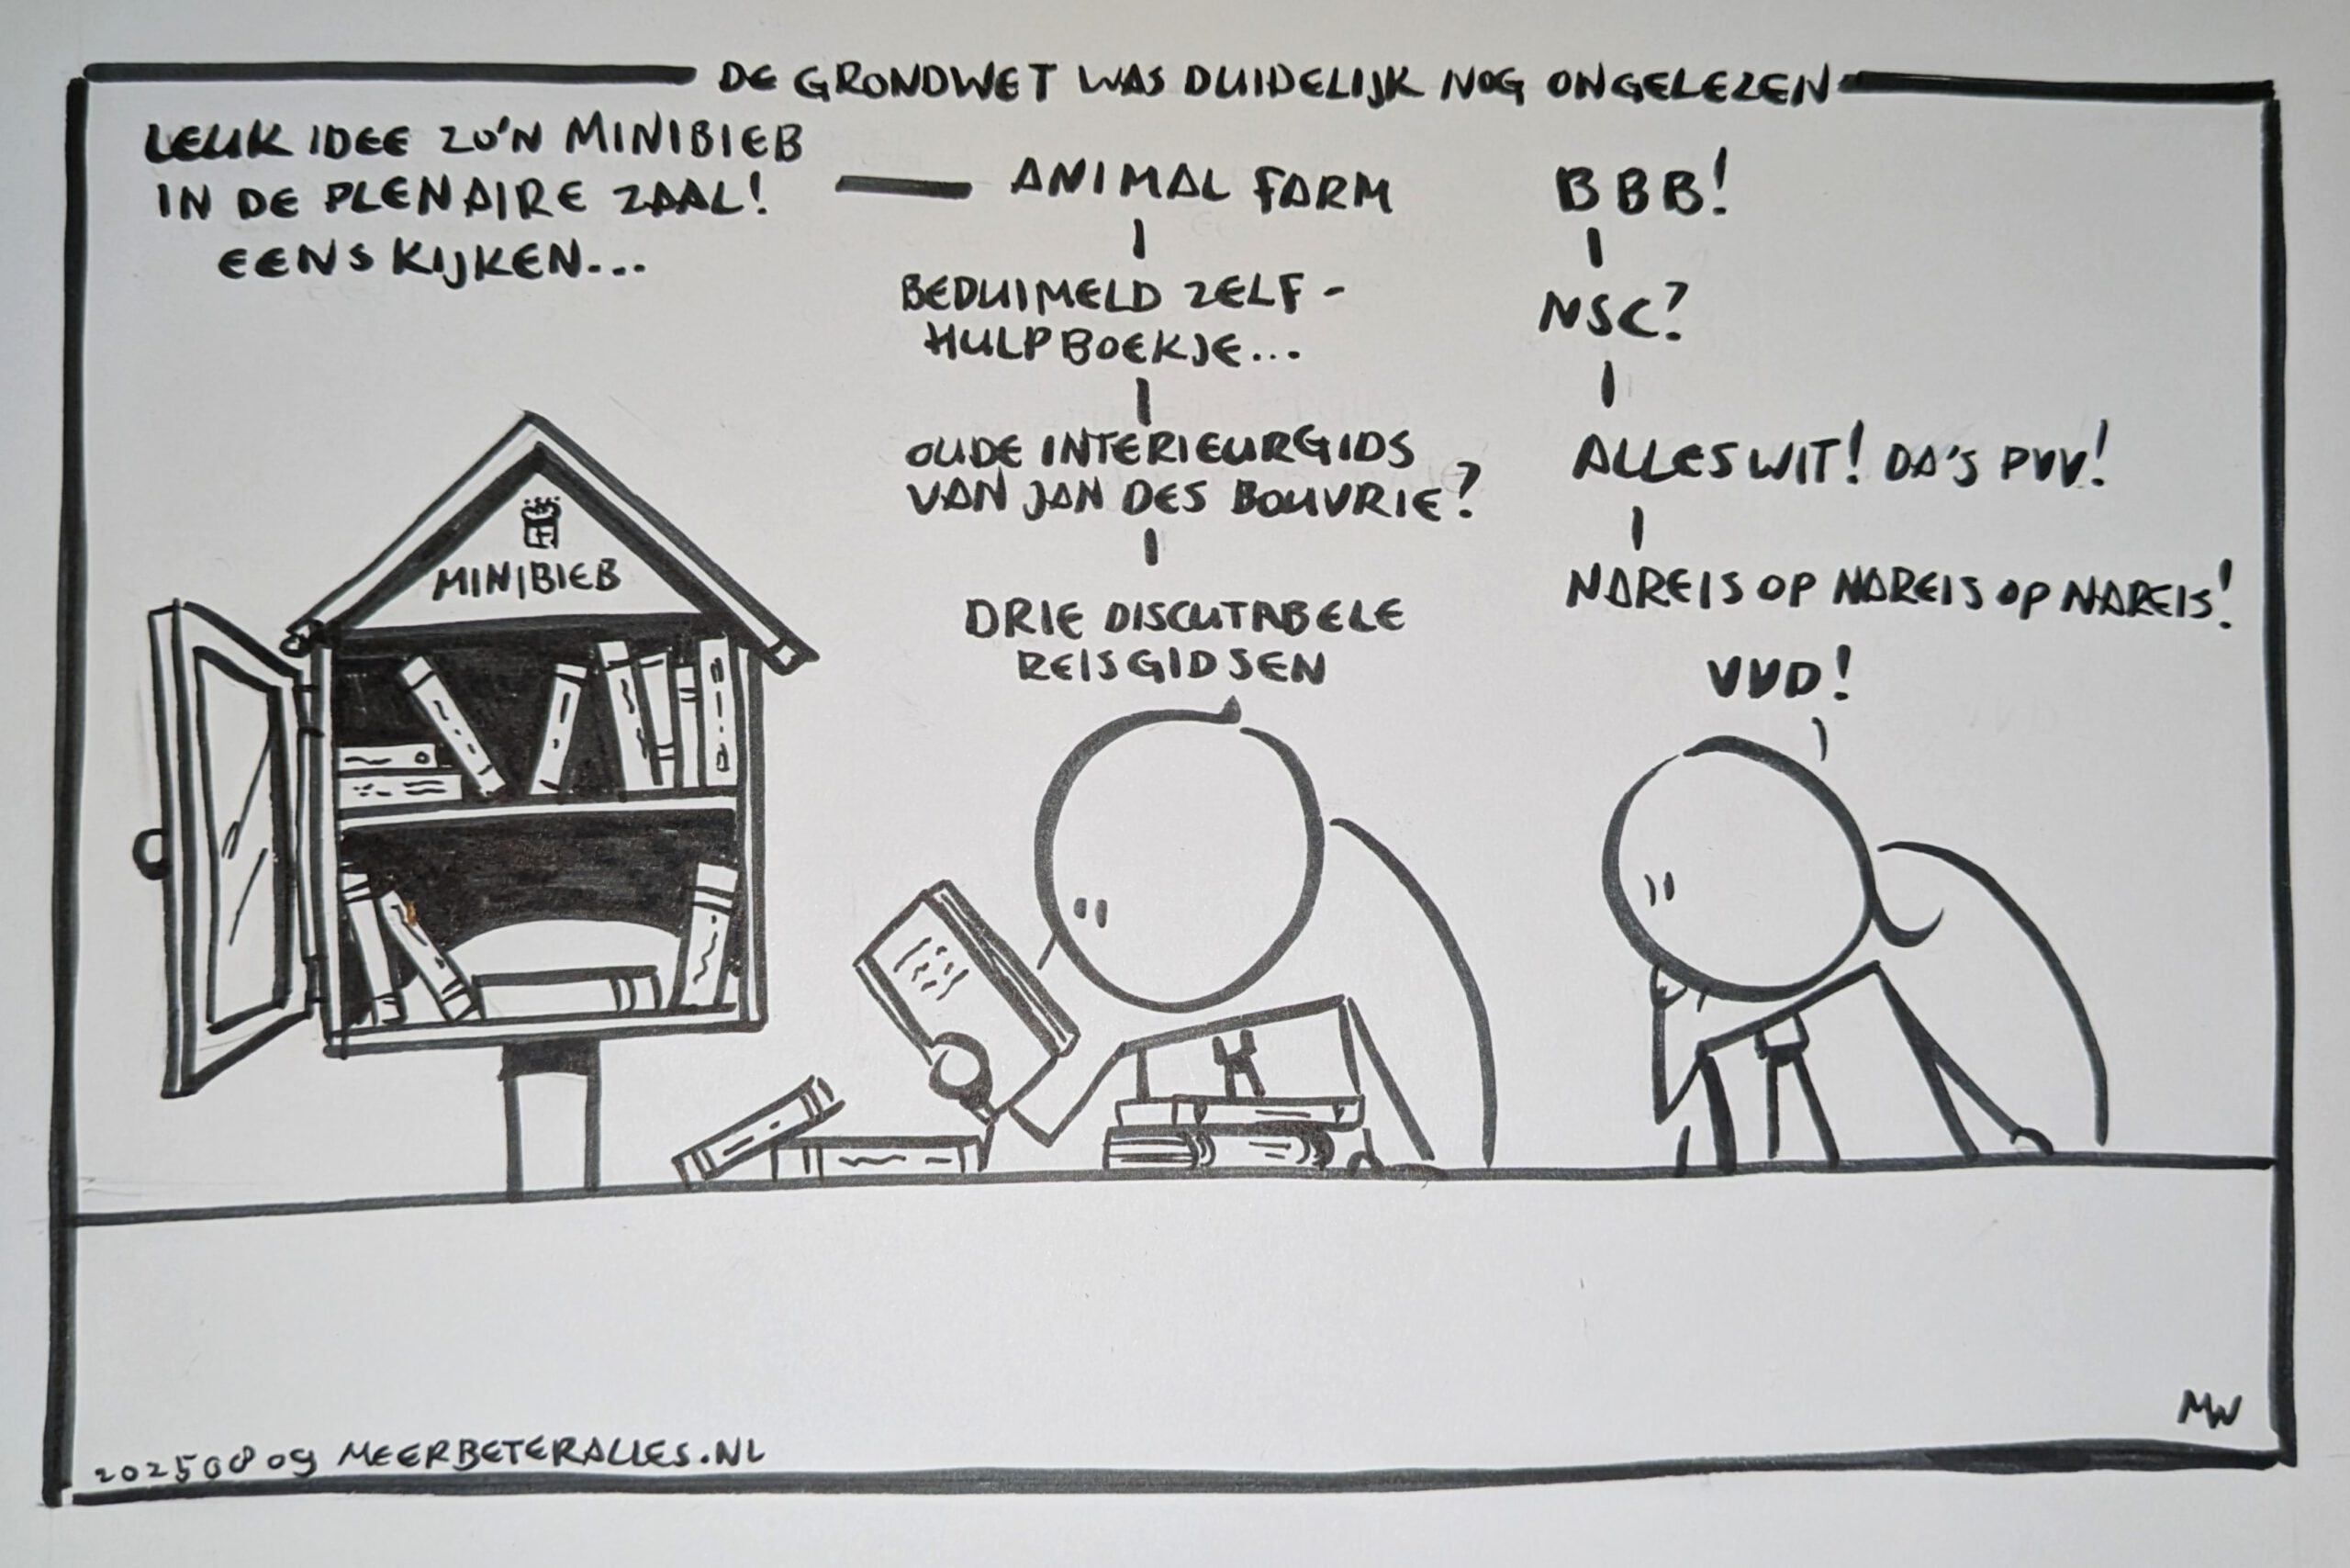 DE GRONDWET WAS DUIDELIJK NOG ONGELEZEN
LEUK IDEE ZO'N MINIBIEB
IN DE PLENAIRE ZAAL!
EENS KIJKEN...
ANIMAL FARM
BBB!
BEDUIMELD ZELF-
HULPBOEKJE...
NSC?
OUDE INTERIEURGIDS
VAN JAN DES BOUVRIE?
ALLES WIT! DA'S PVV!
DRIE DISCUTABELE
REISGIDSEN
NAREIS OP NAREIS OP NAREIS!
VVD!
MINIBIEB
20250809 MEERBETERALLES.NL
MW